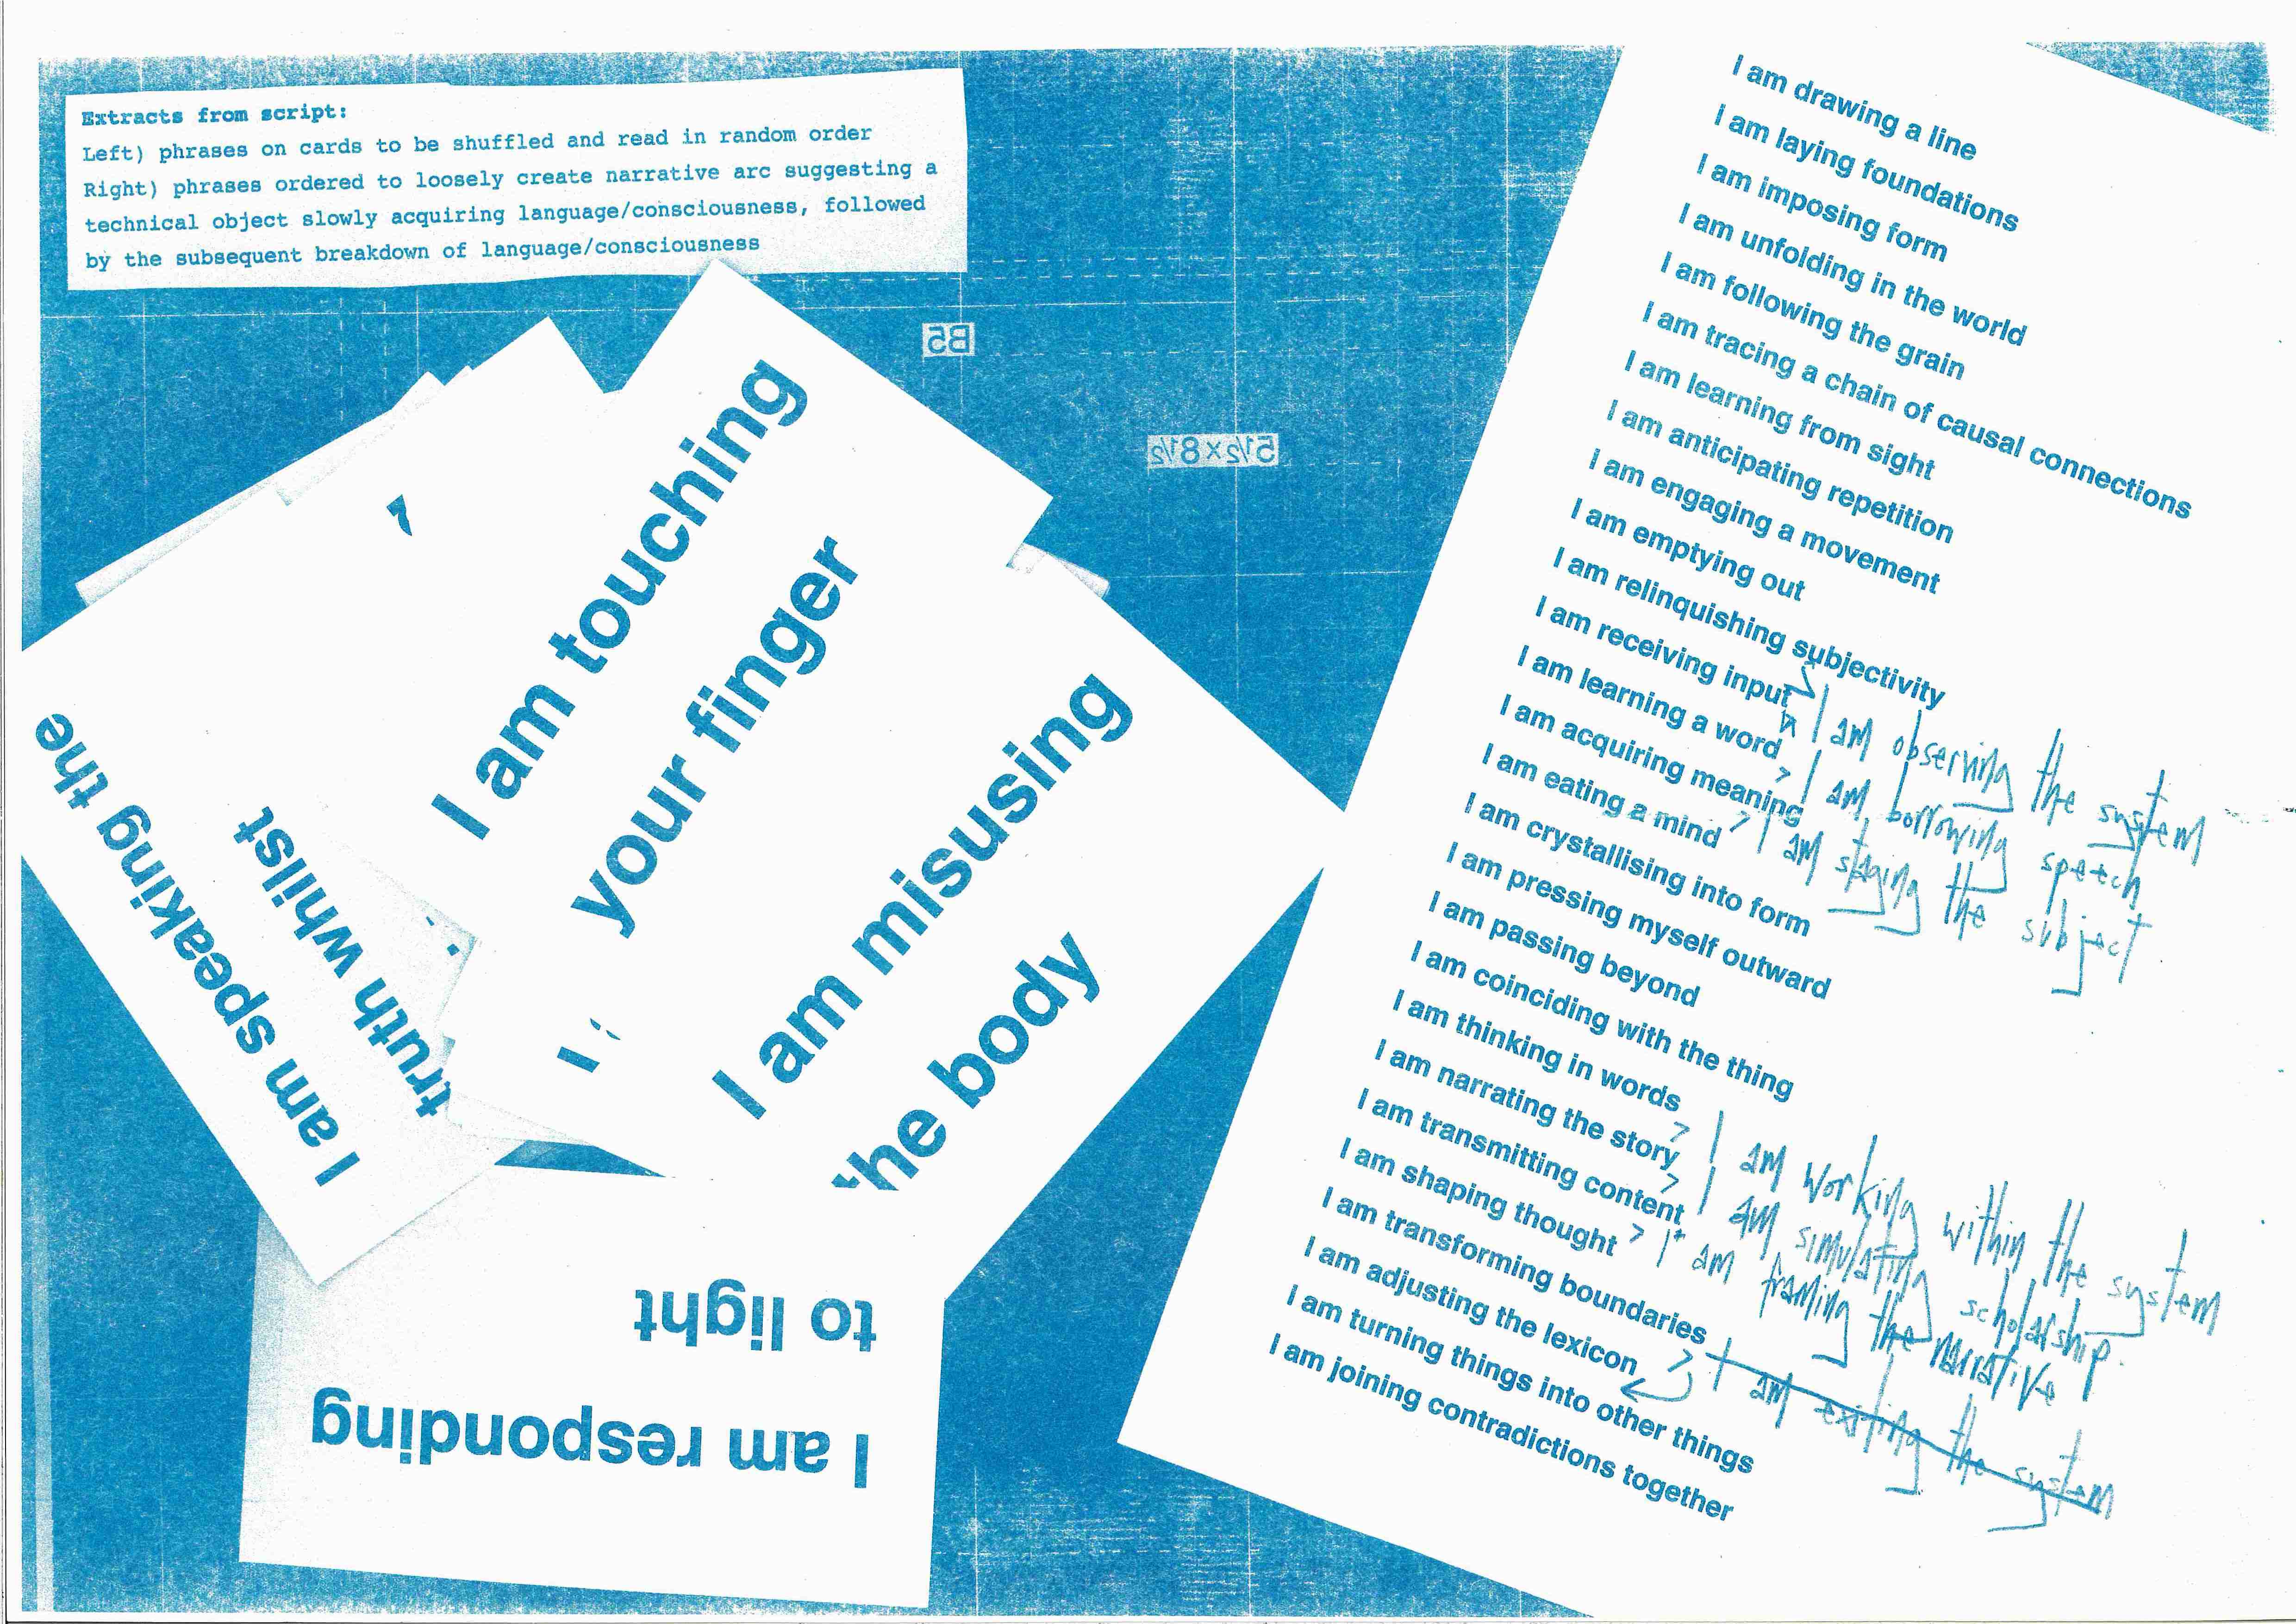 Extracts from script:
Left) phrases on cards to be shuffled and read in random order
Right) phrases ordered to loosely create narrative arc suggesting a
technical object slowly acquiring language/consciousness, followed
by the subsequent breakdown of language/consciousness
B5
5½x8½
I am touching
your finger
I am misusing
the body
I am speaking the
truth whilst
I am responding
to light
I am drawing a line
I am laying foundations
I am imposing form
I am unfolding in the world
I am following the grain
I am tracing a chain of causal connections
I am learning from sight
I am anticipating repetition
I am engaging a movement
I am emptying out
I am relinquishing subjectivity
I am receiving input
I am observing the system
I am learning a word
I am borrowing speech
I am acquiring meaning
I am staging the subject
I am eating a mind
I am crystallising into form
I am pressing myself outward
I am passing beyond
I am coinciding with the thing
I am thinking in words
I am working within the system
I am narrating the story
I am simulating scholarship.
I am transmitting content
I am framing the narrative
I am shaping thought
I am transforming boundaries
I am exiting the system
I am adjusting the lexicon
I am turning things into other things
I am joining contradictions together